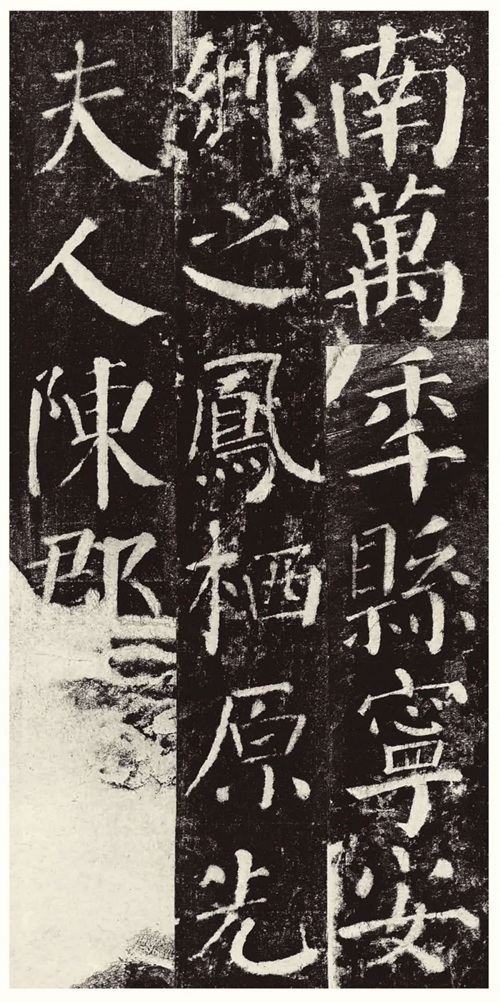 南萬秊縣寧安
鄉之鳳栖原先
夫人陳郡